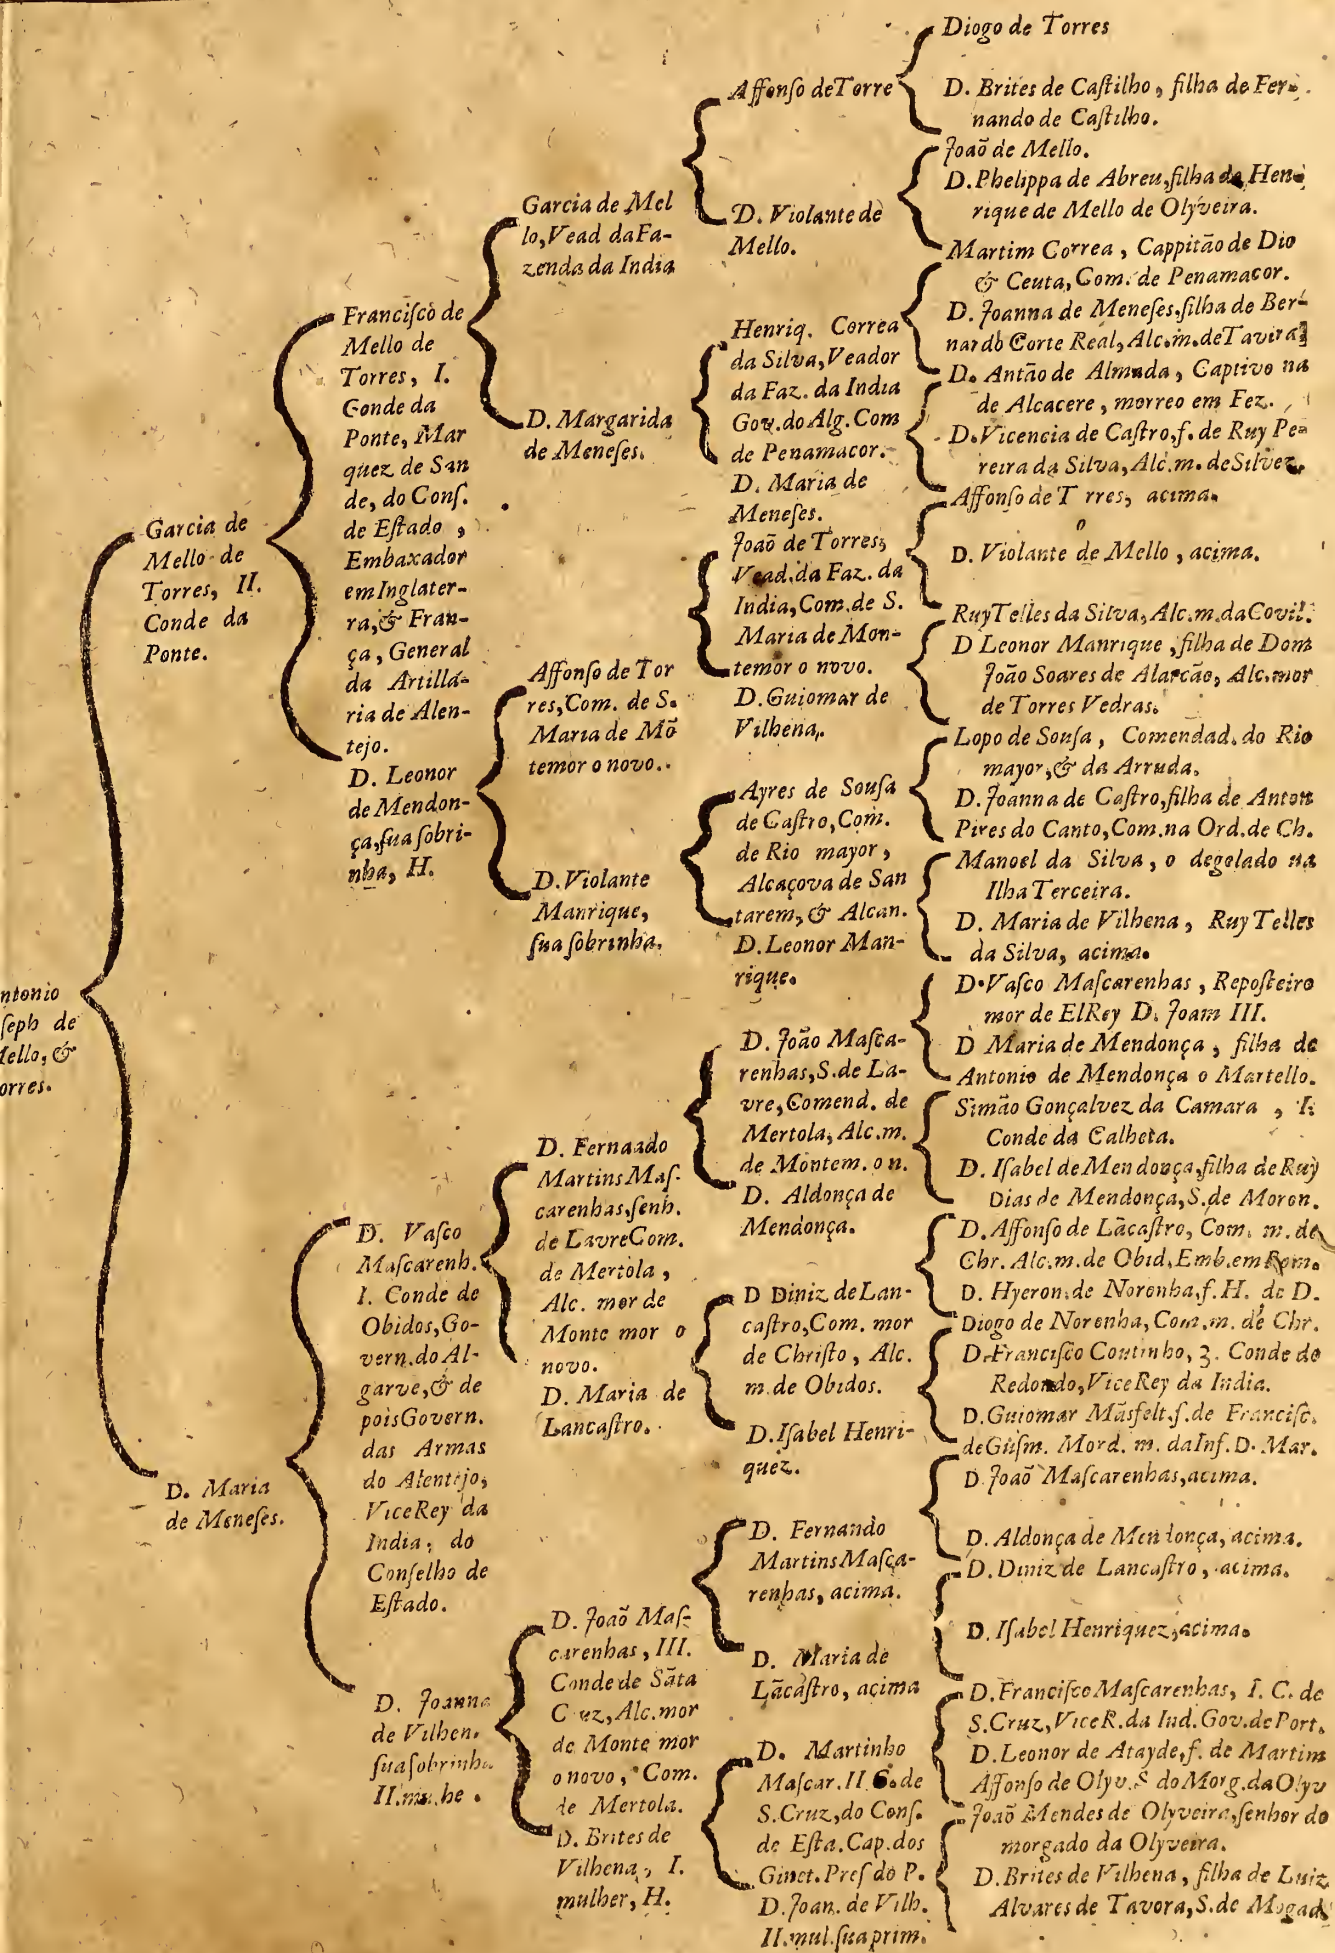 ntonio
ſeph de
Mello, &
orres.
Garcia de
Mello de
Torres, II.
Conde da
Ponte.
D. Maria
de Meneſes.
Franciſco de
Mello de
Torres, I.
Conde da
Ponte, Mar
quez de San
de, do Conſ.
de Eſtado ,
Embaxador
em Inglater-
ra, & Fran-
ça, General
da Artilla-
ria de Alen-
tejo.
D. Leonor
de Mendon-
ça, ſua ſobri-
nha, H.
D. Vaſco
Maſcarenh.
I. Conde de
Obidos, Go-
vern. do Al-
garve, & de
pois Govern.
das Armas
do Alentejo,
ViceRey da
India, do
Conſelho de
Eſtado.
D. Joanna
de Vilhen.
ſua ſobrinha
II. mu. he .
Garcia de Mel
lo, Vead da Fa-
zenda da India
D. Margarida
de Meneſes.
Affonſo de Tor
res, Com. de S.
Maria de Mõ
temor o novo..
D. Violante
Manrique,
ſua ſobrinha.
D. Fernando
Martins Maſ-
carenhas, ſenh.
de Lavre Com.
de Mertola ,
Alc. mor de
Monte mor o
novo.
D. Maria de
Lancaſtro.
D. Joaõ Maſ-
carenhas, III.
Conde de Sãta
C uz, Alc. mor
de Monte mor
o novo, Com.
de Mertola.
D. Brites de
Vilhena, I.
mulher, H.
Affonſo de Torre
D. Violante de
Mello.
Henriq. Correa
da Silva, Veador
da Faz. da India
Gov. do Alg. Com
de Penamacor.
D. Maria de
Meneſes.
Joaõ de Torres,
Vead. da Faz. da
India, Com. de S.
Maria de Mon-
temor o novo.
D. Guiomar de
Vilhena,
Ayres de Souſa
de Caſtro, Com.
de Rio mayor ,
Alcaçova de San
tarem, & Alcan.
D. Leonor Man-
rique.
D. João Maſca-
renhas, S. de La-
vre, Comend. de
Mertola, Alc. m.
de Montem. o n.
D. Aldonça de
Mendonça.
D Diniz de Lan-
caſtro, Com. mor
de Chriſto , Alc.
m. de Obidos.
D. Iſabel Henri-
quez.
D. Fernando
Martins Maſca-
renhas, acima.
D. Maria de
Lãcaſtro, acima
D. Martinho
Maſcar. II C. de
S. Cruz, do Conſ.
de Eſta. Cap. dos
Ginet. Preſ do P.
D. Joan. de Vilh.
II. mul. ſua prim.
Diogo de Torres
D. Brites de Caſtilho , filha de Fer-
nando de Caſtilho.
Joaõ de Mello.
D. Phelippa de Abreu, filha de Hen-
rique de Mello de Olyveira.
Martim Correa , Cappitão de Dio
& Ceuta, Com. de Penamacor.
D. Joanna de Meneſes, filha de Ber-
nardo Corte Real, Alc. m. de Tavira.
D. Antão de Almada , Captivo na
de Alcacere , morreo em Fez.
D. Vicencia de Caſtro, f. de Ruy Pe-
reira da Silva, Alc. m. de Silvez.
Affonſo de T rres, acima.
D. Violante de Mello , acima.
Ruy Telles da Silva, Alc. m. da Covil.
D Leonor Manrique , filha de Dom
João Soares de Alarcão, Alc. mor
de Torres Vedras.
Lopo de Souſa , Comendad. do Rio
mayor, & da Arruda.
D. Joanna de Caſtro, filha de Anton
Pires do Canto, Com. na Ord. de Ch.
Manoel da Silva , o degolado na
Ilha Terceira.
D. Maria de Vilhena , Ruy Telles
da Silva, acima.
D. Vaſco Maſcarenhas , Repoſteiro
mor de ElRey D. Joam III.
D Maria de Mendonça , filha de
Antonio de Mendonça o Martello.
Simão Gonçalvez da Camara , I.
Conde da Calheta.
D. Iſabel de Mendonça, filha de Ruy
Dias de Mendonça, S. de Moron.
D. Affonſo de Lãcaſtro, Com. m. de
Chr. Alc. m. de Obid. Emb. em Rom.
D. Hyeron. de Noronha, f. H. de D.
Diogo de Noronha, Com. m. de Chr.
D. Franciſco Coutinho, 3. Conde do
Redondo, ViceRey da India.
D. Guiomar Masfelt. f. de Franciſc.
de Guſm. Mord. m. da Inf. D. Mar.
D. Joaõ Maſcarenhas, acima.
D. Aldonça de Mendonça, acima.
D. Diniz de Lancaſtro, acima.
D. Iſabel Henriquez, acima.
D. Franciſco Maſcarenhas, I. C. de
S. Cruz, ViceR. da Ind. Gov. de Port.
D. Leonor de Atayde, f. de Martim
Affonſo de Olyv. S do Morg. da Olyv
Joaõ Mendes de Olyveira, ſenhor do
morgado da Olyveira.
D. Brites de Vilhena , filha de Luiz
Alvares de Tavora, S. de Mogad.